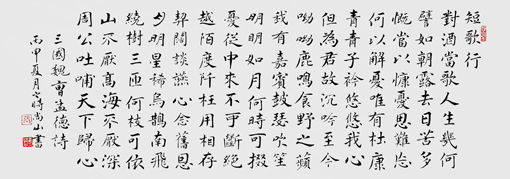 短歌行
對酒當歌人生幾何
譬如朝露去日苦多
慨當以慷憂思難忘
何以解憂唯有杜康
青青子衿悠悠我心
但為君故沉吟至今
呦呦鹿鳴食野之蘋
我有嘉賓鼓瑟吹笙
明明如月何時可掇
憂從中來不可斷絕
越陌度阡枉用相存
契闊談讌心念舊恩
月明星稀烏鵲南飛
繞樹三匝何枝可依
山不厭高海不厭深
周公吐哺天下歸心
三國魏曹孟德詩
丙申夏月尚山書